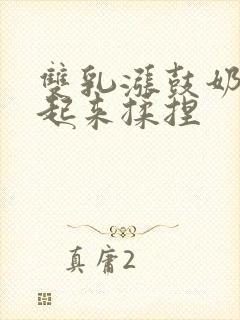 雙乳漲鼓奶
起來揉捏
真庸2